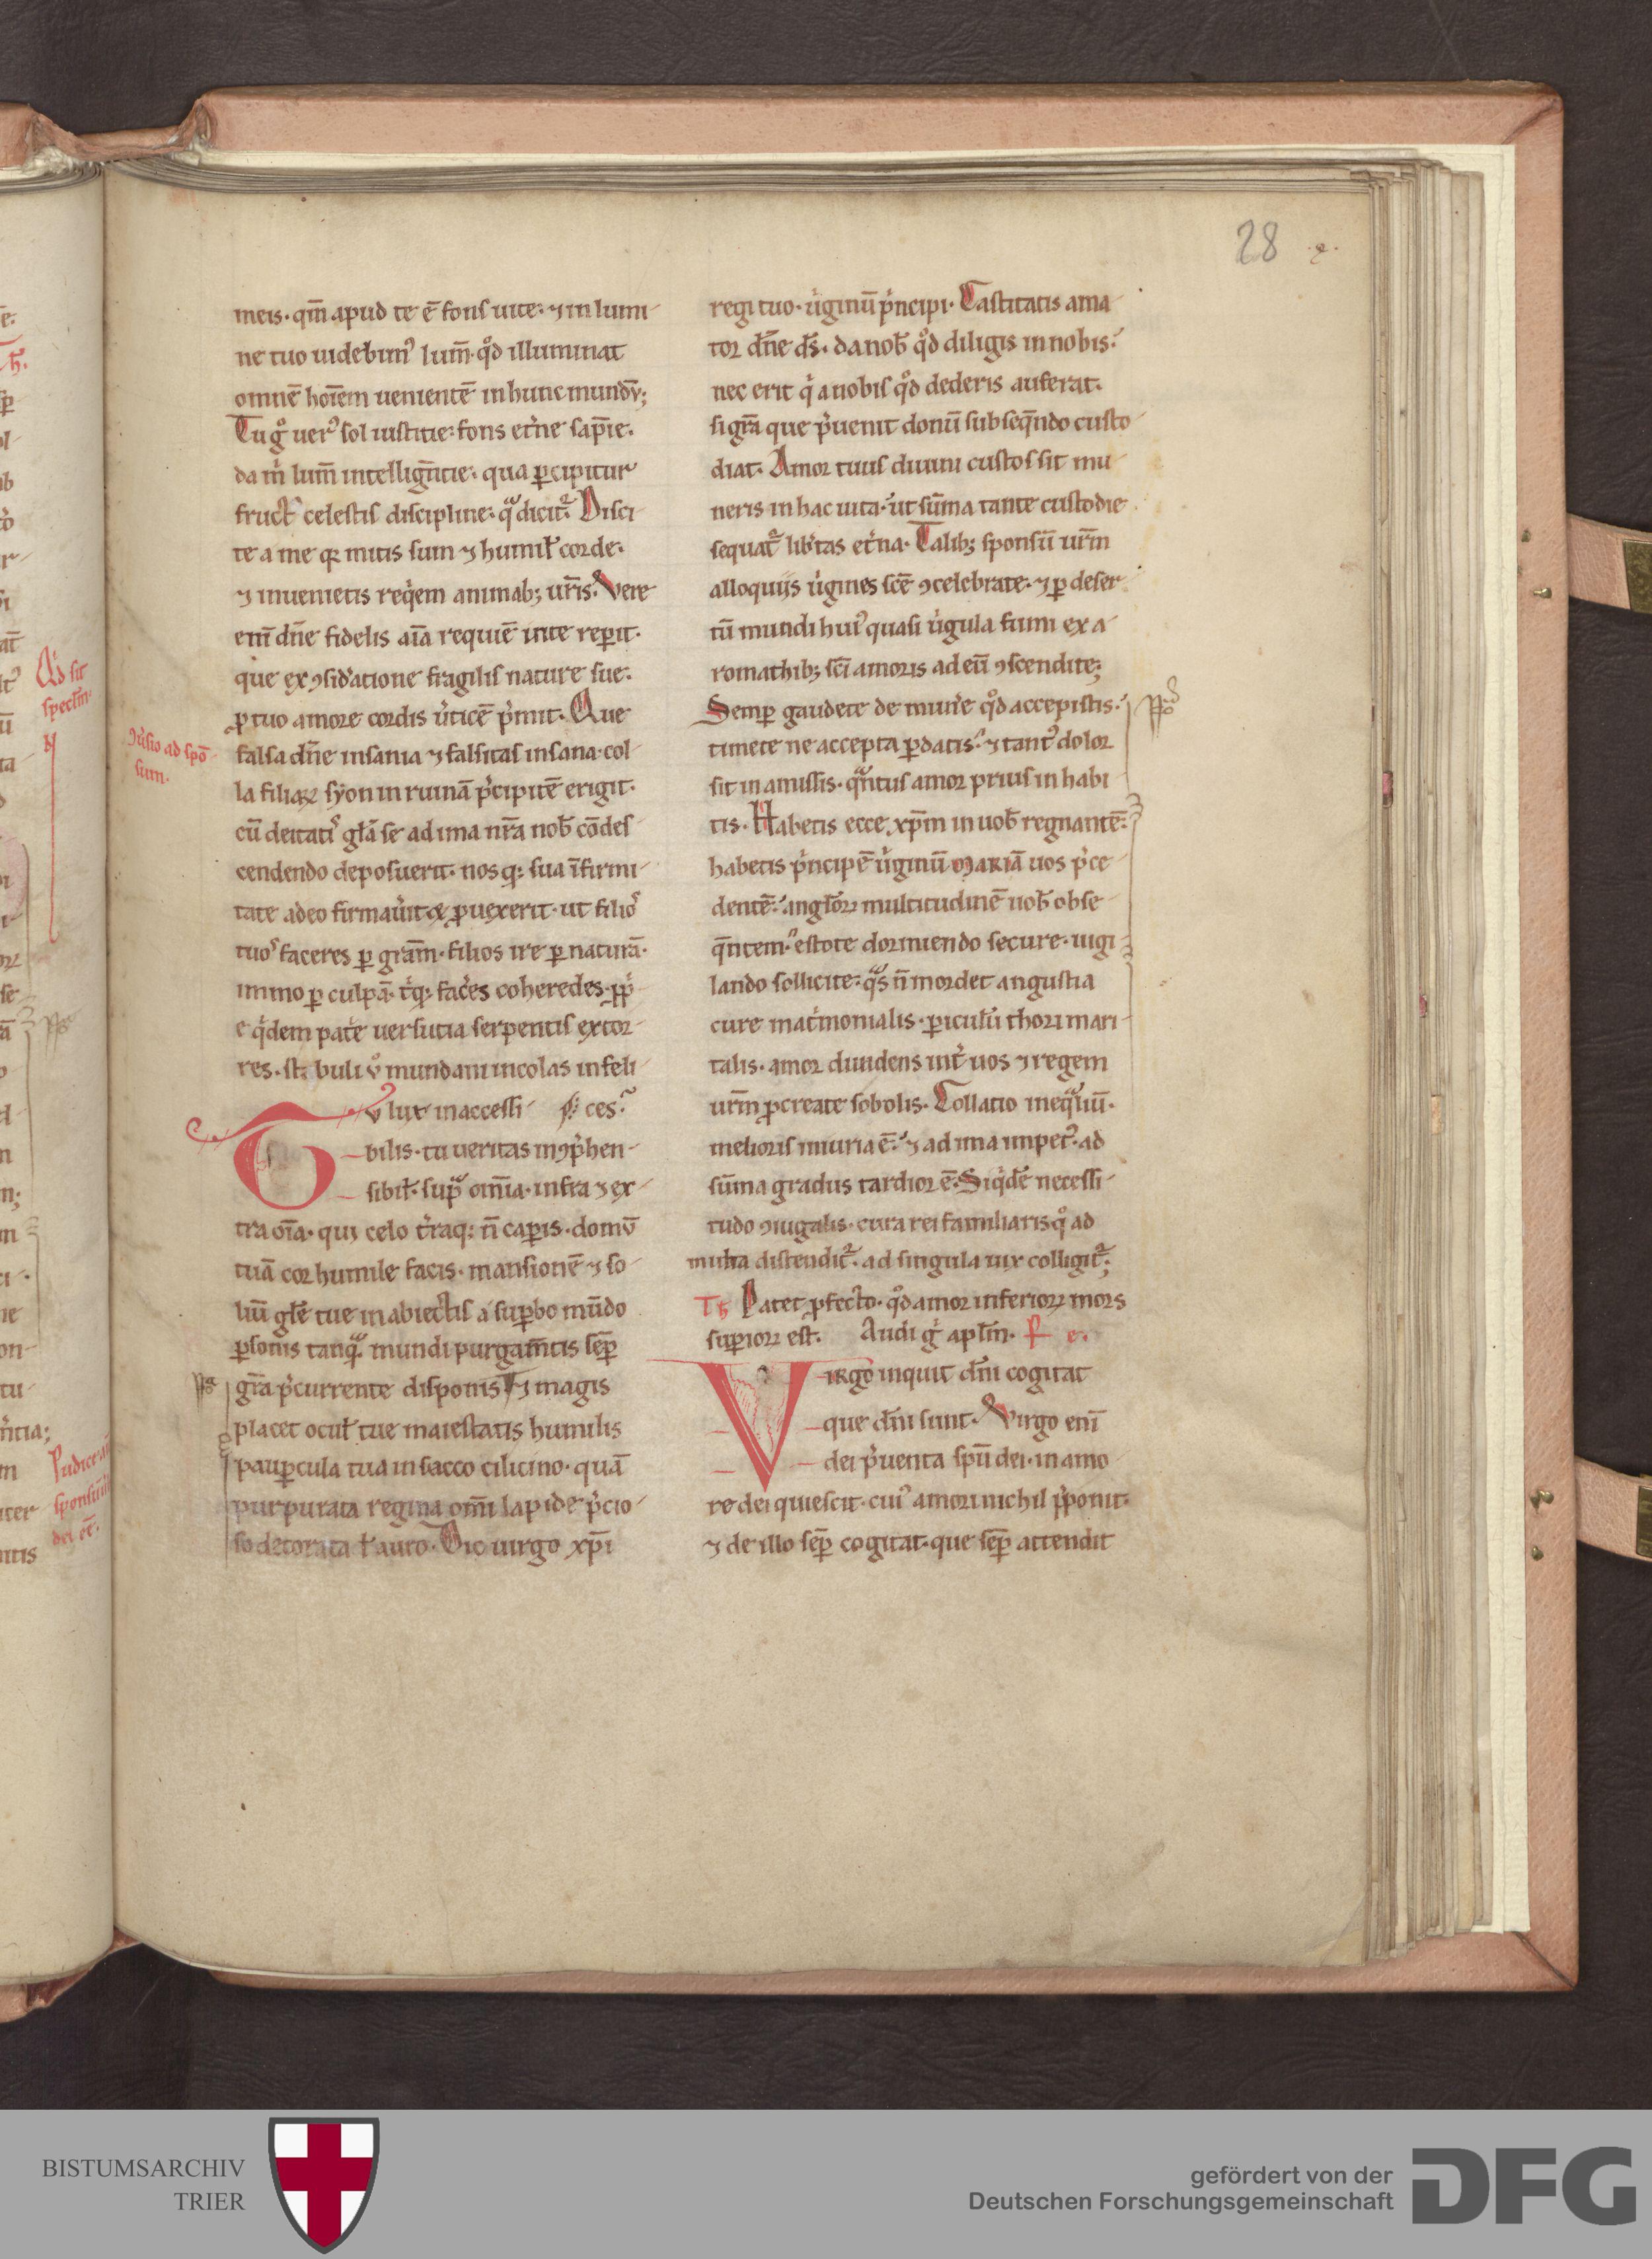 28
meis· qm̄ apud te ē fons uite: ⁊ in lumi
ne tuo uidebimꝰ lum̄· qͦd illuminat
omnē hoīem uenientē in hunc mundū;
Tu gͦ uerꝰ sol iustitie: fons et̾ne sap̄ie·
da m̍ lum̄ intelliḡntie· qua ꝑcipitur
fructꝰ celestis discipline: qᷓ dicit᷑· Disci
te a me qꝛ mitis sum ⁊ humił corde·
⁊ inuenietis reqͥem animabꝫ ur̄is· Vere
enī dn̄e fidelis aīa requiē in te reꝑit·
que ex ꝯsid̾atione fragilis nature sue·
ꝓ tuo amore cordis u̾ticē p̾mit· Que
falsa dn̄e insania ⁊ falsitas insana· col
la filiaꝝ syon in ruinā p̾cipitē erigit·
cū deitatꝭ gła se ad ima nr̄a nob̄ cōdes
cendendo deposuerit· nosqꝫ sua īfirmi
tate adeo firmau̾it & ꝓuexerit· ut filioˢ
tuoˢ faceres ꝑ grām· filios ire ꝑ naturā·
immo ꝑ culpā·
e qͥdem pat̾e uersutia serpentis extor
res· st buli u̾ͦ mundani incolas infeli
Tu lux inaccessi ces·
bilis· tu ueritas inꝯp̾hen
sibił· supᷓ om̄ia· infra ⁊ ex
tra oīa· qui celo t̾raqꝫ n̄ capis· domū
tuā cor humile facis· mansionē ⁊ so
liū głe tue in abiectis a suꝑbo mūdo
ꝑsonis tanqᷓ mundi purgam̄tis semꝑ
gr̄a p̾currente disponis· ⁊ magis
placet ocuł tue maiestatis humilis
pauꝑcula tua in sacco cilicino· quā
purpurata regina om̄i lapide p̾cio
so decorata ł auro· Dic uirgo xp̄i
regi tuo· u̾ginū pͥncipi· Castitatis ama
tor dn̄e ds̄· da nob̄ qͦd diligis in nobis·
nec erit qͥ a nobis qͦd dederis auferat·
si gr̄a que p̾uenit donū subseq̄ndo custo
diat· Amor tuus diuini custos sit mu
neris in hac uita· ut sūma tante custodie
sequat᷑ lib̾tas et̾na· Talibꝫ sponsū ur̄m
alloquiis u̾gines sc̄e ꝯcelebrate· ⁊ ꝑ deser
tū mundi huiꝰ quasi u̾gula fumi ex a
romathibꝫ sc̄i amoris ad eū ꝯscendite;
Semꝑ gaudete de mun̾e qͦd accepistis·
timete ne accepta ꝑdatis· ⁊ tantꝰ dolor
sit in amissis· qᷓntus amor prius in habi
tis· Habetis ecce xp̄m in uob̄ regnantē·
habetis pͥncipē u̾ginū MARIĀ uos p̾ce
dentē· angłoꝝ multitudinē uob̄ obse
q̄ntem· estote dormiendo secure· uigi
lando sollicite· qᷓs n̄ mordet angustia
cure mat̾monialis· ꝑicułū thori mari
talis· amor diuidens int̾ uos ⁊ regem
ur̄m ꝓcreate sobolis· Collatio ineqᷓliū·
melioris iniuria ē· ⁊ ad ima impetꝰ· ad
sūma gradus tardior ē· Siqͥdē necessi
tudo ꝯiugalis· cura rei familiaris qͦ ad
multa distendit᷑· ad singula uix colligit᷑;
Th Patet ꝓfecto· qͦd amor inferioꝝ mors
suꝑioꝝ est· Audi gͦ apłm· P e·
Virgo inquit dn̄i cogitat
que dn̄i sunt· Virgo enī
dei p̾uenta spū dei· in amo
re dei quiescit· cuiꝰ amori nichil p̾ponit·
⁊ de illo semꝑ cogitat· que semꝑ attendit
BISTUMSARCHIV
TRIER
gefördert von der
Deutschen Forschungsgemeinschaft
DFG